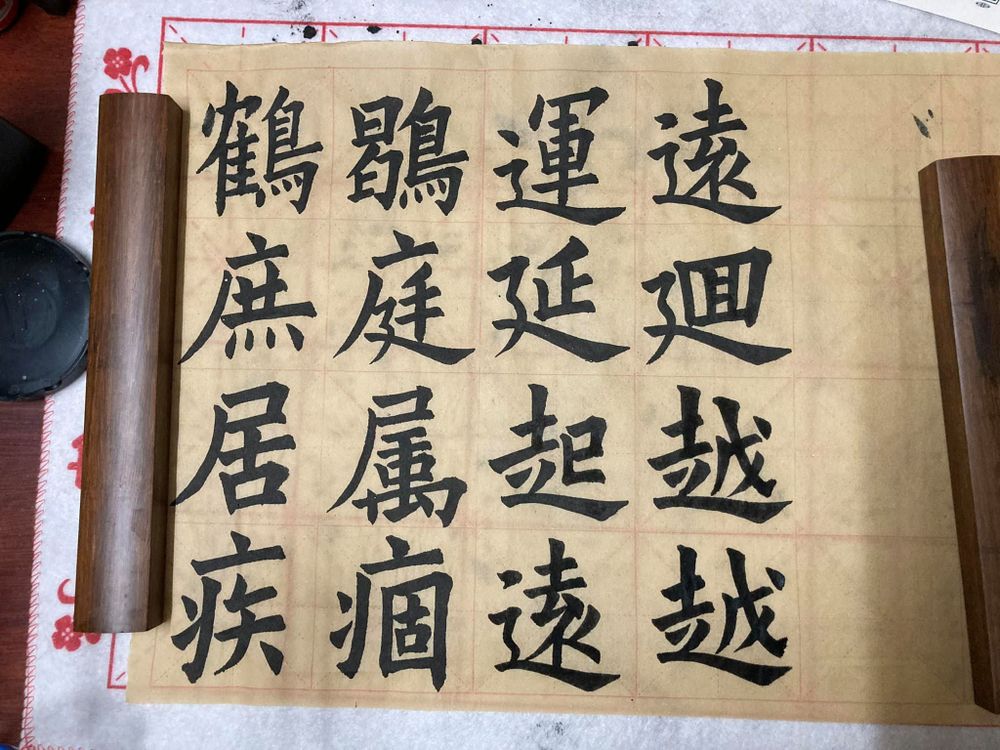 鶴鶡運遠
庶庭延廻
居属起越
疾痼遠越